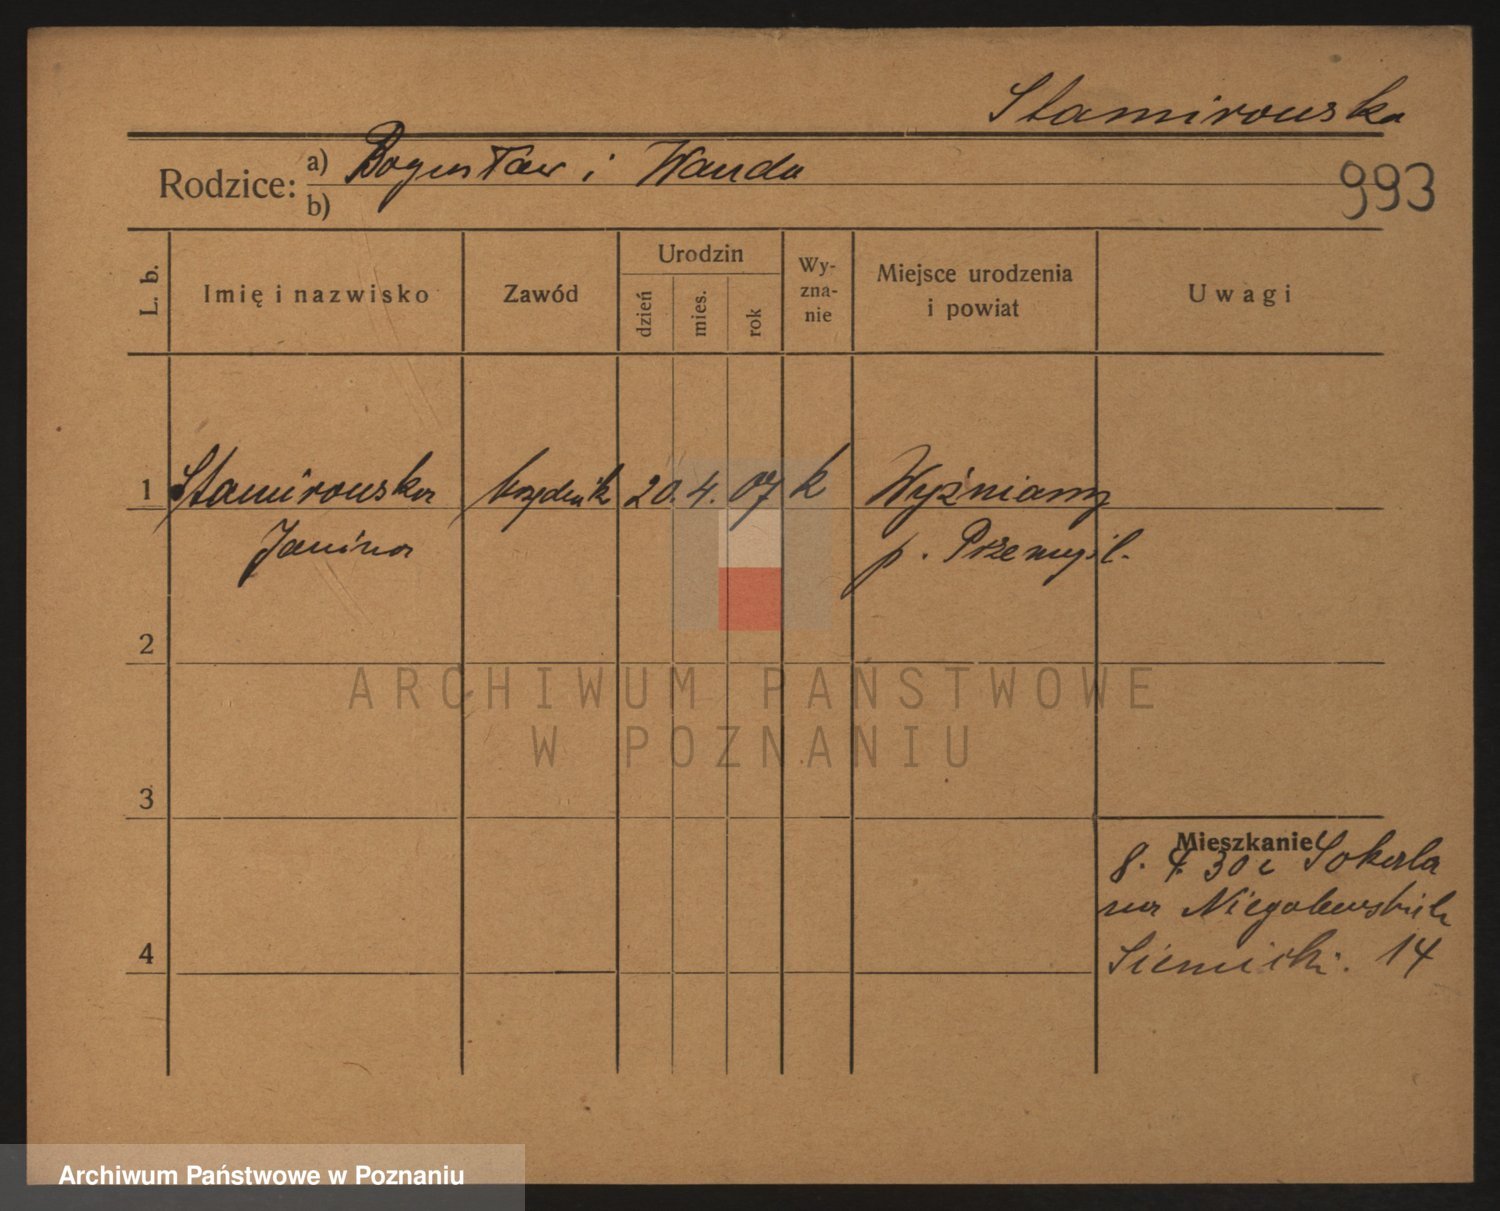 Stamirowska
Rodzice: a) Bogusław i Wanda
b)
993
L. b.
Imię i nazwisko
Zawód
Urodzin
dzień
mies.
rok
Wy-
zna-
nie
Miejsce urodzenia
i powiat
Uwagi
1 Stamirowska urzędnik 20. 4. 07 k Wyżniany
Janina p. Przemyśl.
2
3
4
Mieszkanie
8. 4. 30 z Sokoła
na Niegolewskich
14
ARCHIWUM PAŃSTWOWE
W POZNANIU
Archiwum Państwowe w Poznaniu